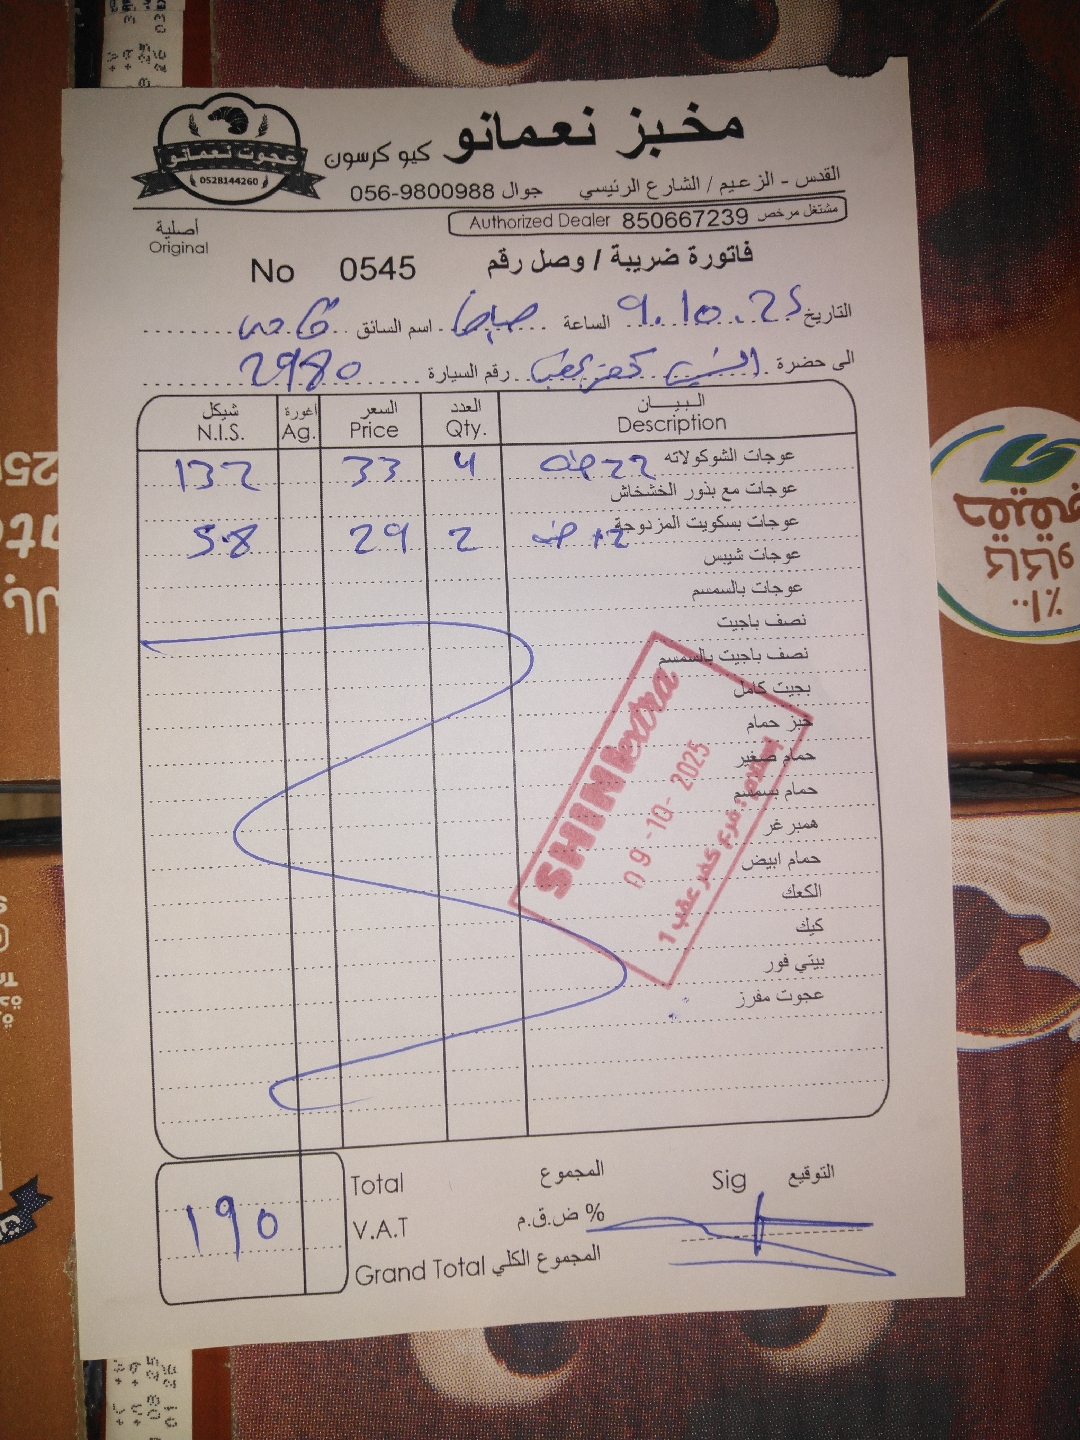 مخبز نعمانو كيو كرسون
عجوت نعمانو
0528144260
القدس - الزعيم / الشارع الرئيسي جوال 056-9800988
مشتغل مرخص 850667239 Authorized Dealer
أصلية
Original
فاتورة ضريبة / وصل رقم No 0545
التاريخ 9.10.25 الساعة صباحا اسم السائق
الى حضرة كفر عقب رقم السيارة 2980
البيـــان العدد السعر اغورة شيكل
Description Qty. Price Ag. N.I.S.
عوجات الشوكولاته 22 4 33 132
عوجات مع بذور الخشخاش
عوجات بسكويت المزدوجة 12 2 29 58
عوجات شيبس
عوجات بالسمسم
نصف باجيت
نصف باجيت بالسمسم
بجيت كامل
خبز حمام
حمام صغير
حمام بسمسم
همبر غر
حمام ابيض
الكعك
كيك
بيتي فور
عجوت مفرز
SHINI extra
09 -10- 2025
فرع كفر عقب 1
المجموع Total
% ض.ق.م V.A.T
المجموع الكلي Grand Total
190
التوقيع Sig